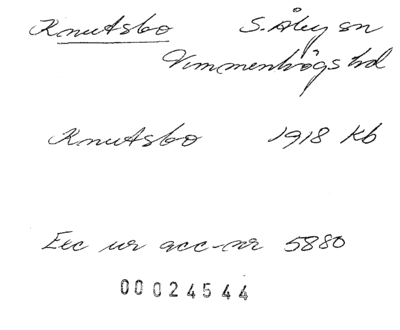 Knutsbo S. Åby sn
Vemmenhögs hd
Knutsbo 1918 Kb
Exc ur acc-nr 5880
00024544